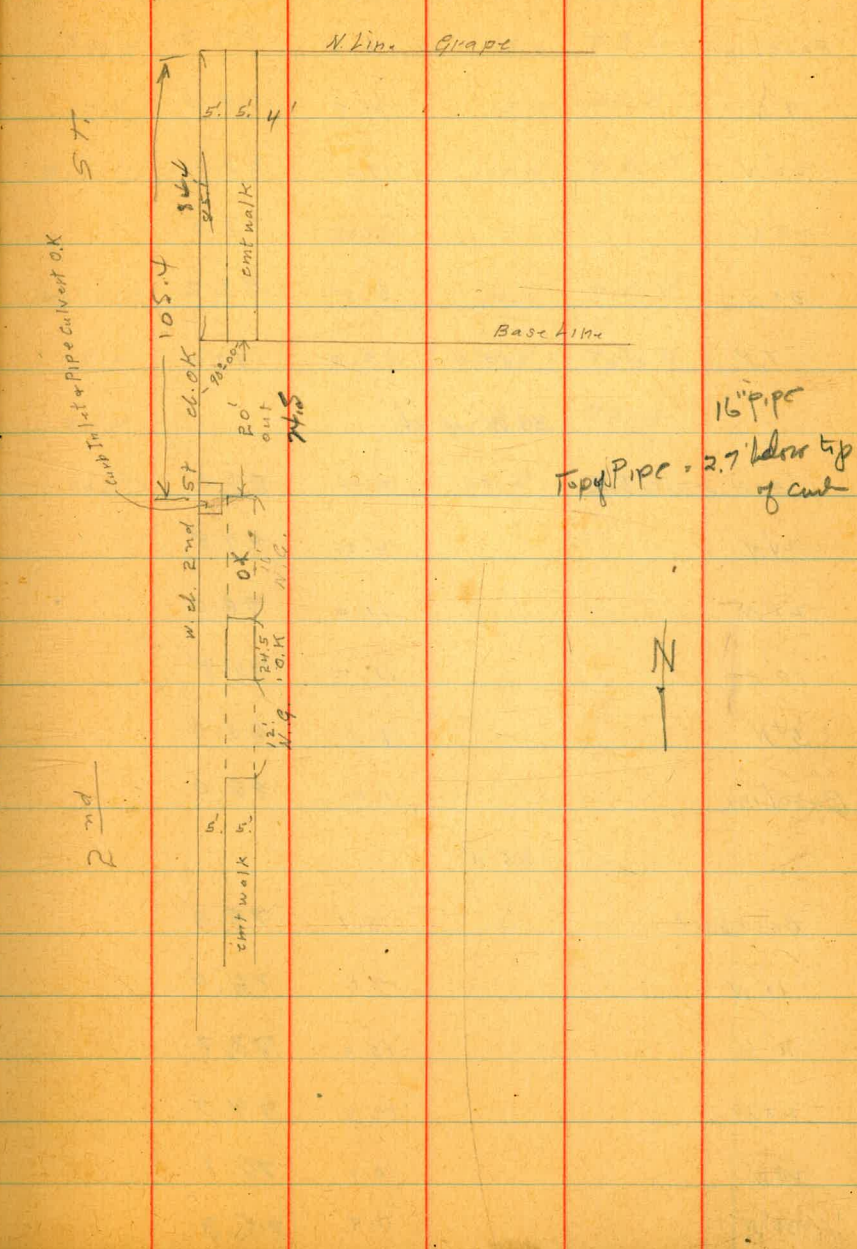 N. Line Grape
St.
5'. 5'. 4'
84.4
85.1
cmt walk
105.4
Curb Inlet & Pipe Culvert O.K
Base Line
90°00'
20'
out
24.5
16" pipe
Top of Pipe = 2.7' below top
of curb
w. cb. 2nd St cb. OK
OK
16'
N.G.
24.5
O.K
12'
N.G.
N
2nd
5'. 5'.
cmt walk